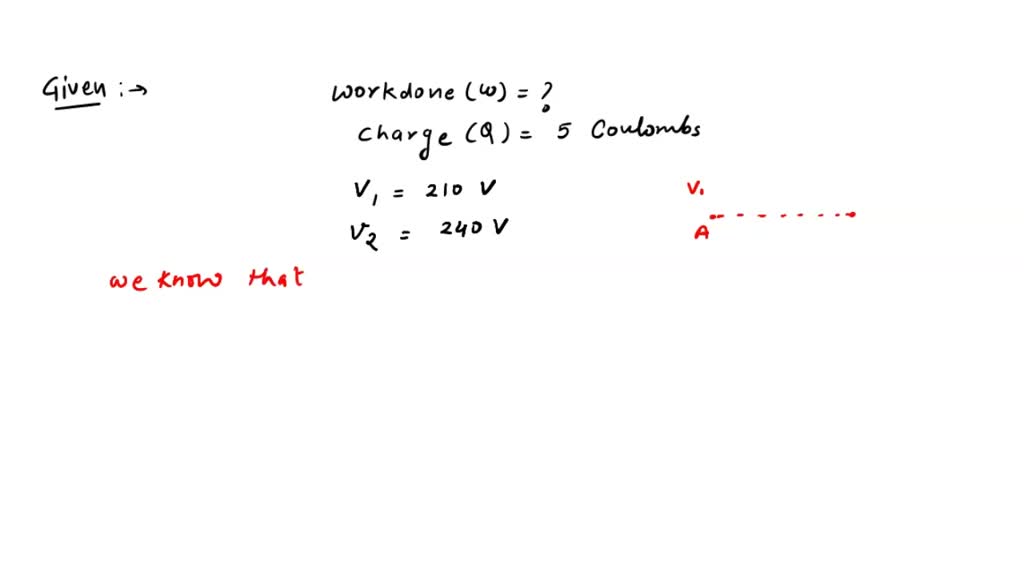 Given :→ workdone (w) = ?
Charge (Q) = 5 Coulombs
V1 = 210 V V1
V2 = 240 V A
we know that